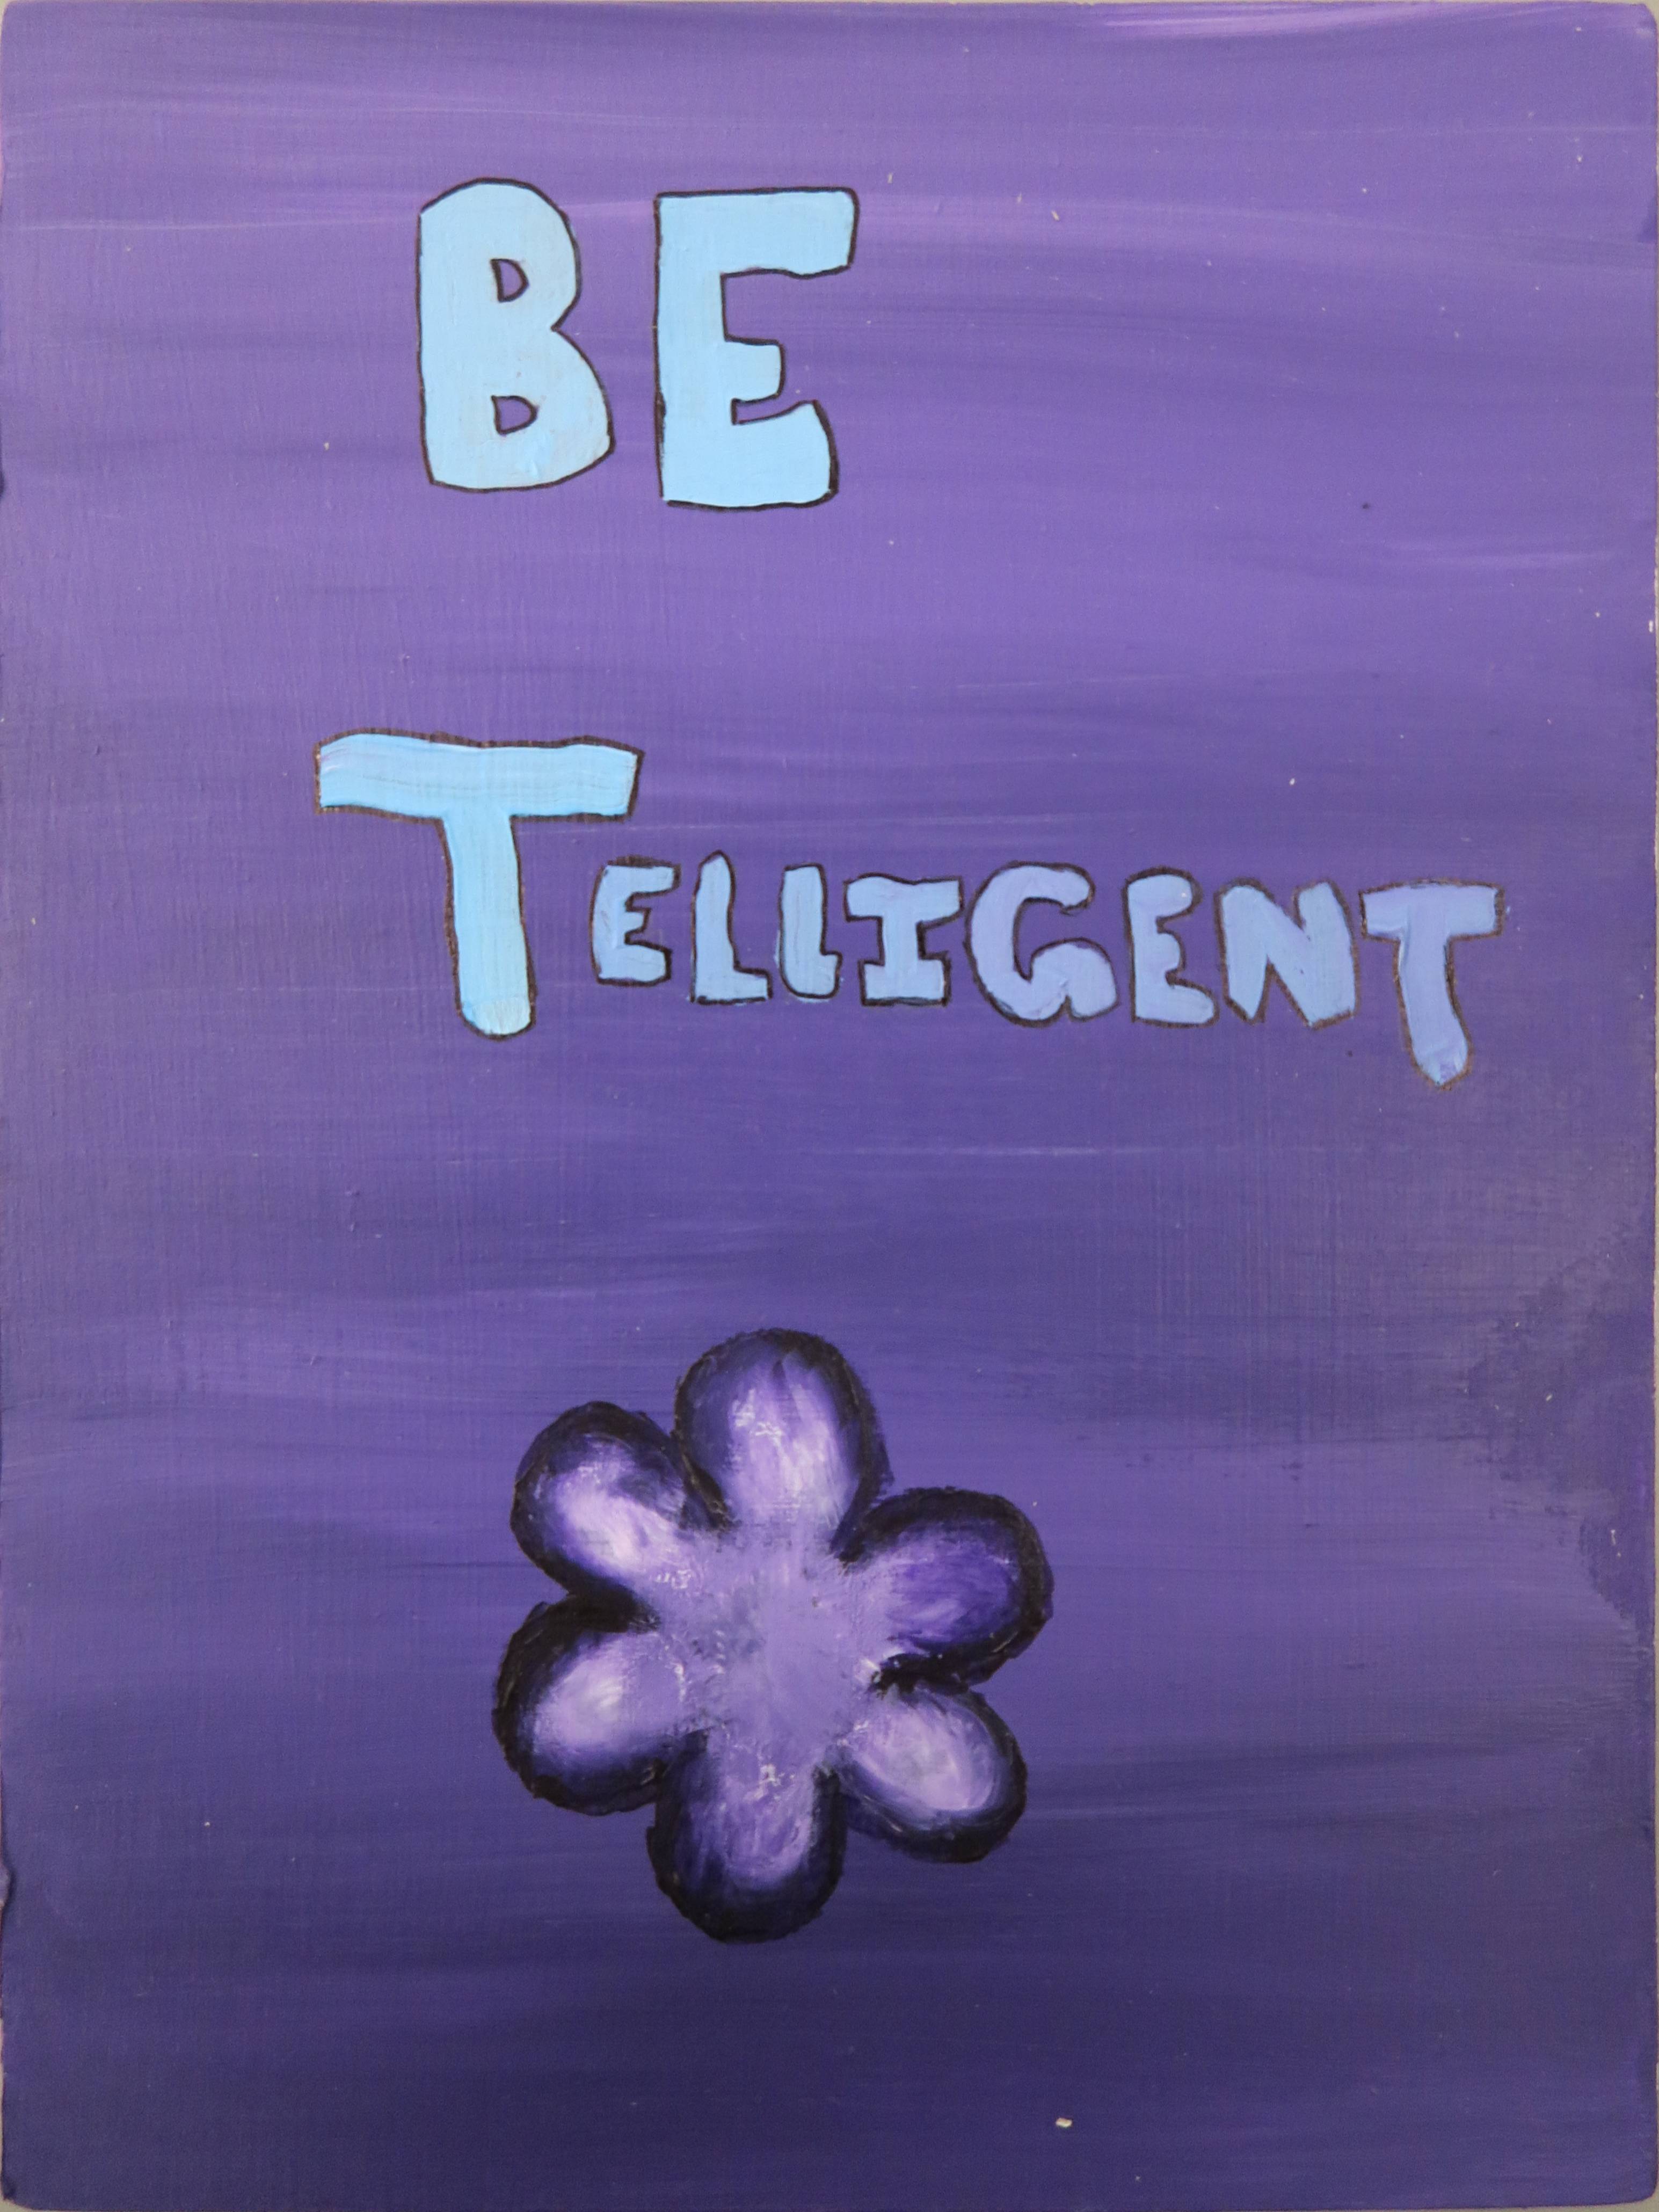 BE
TELLIGENT